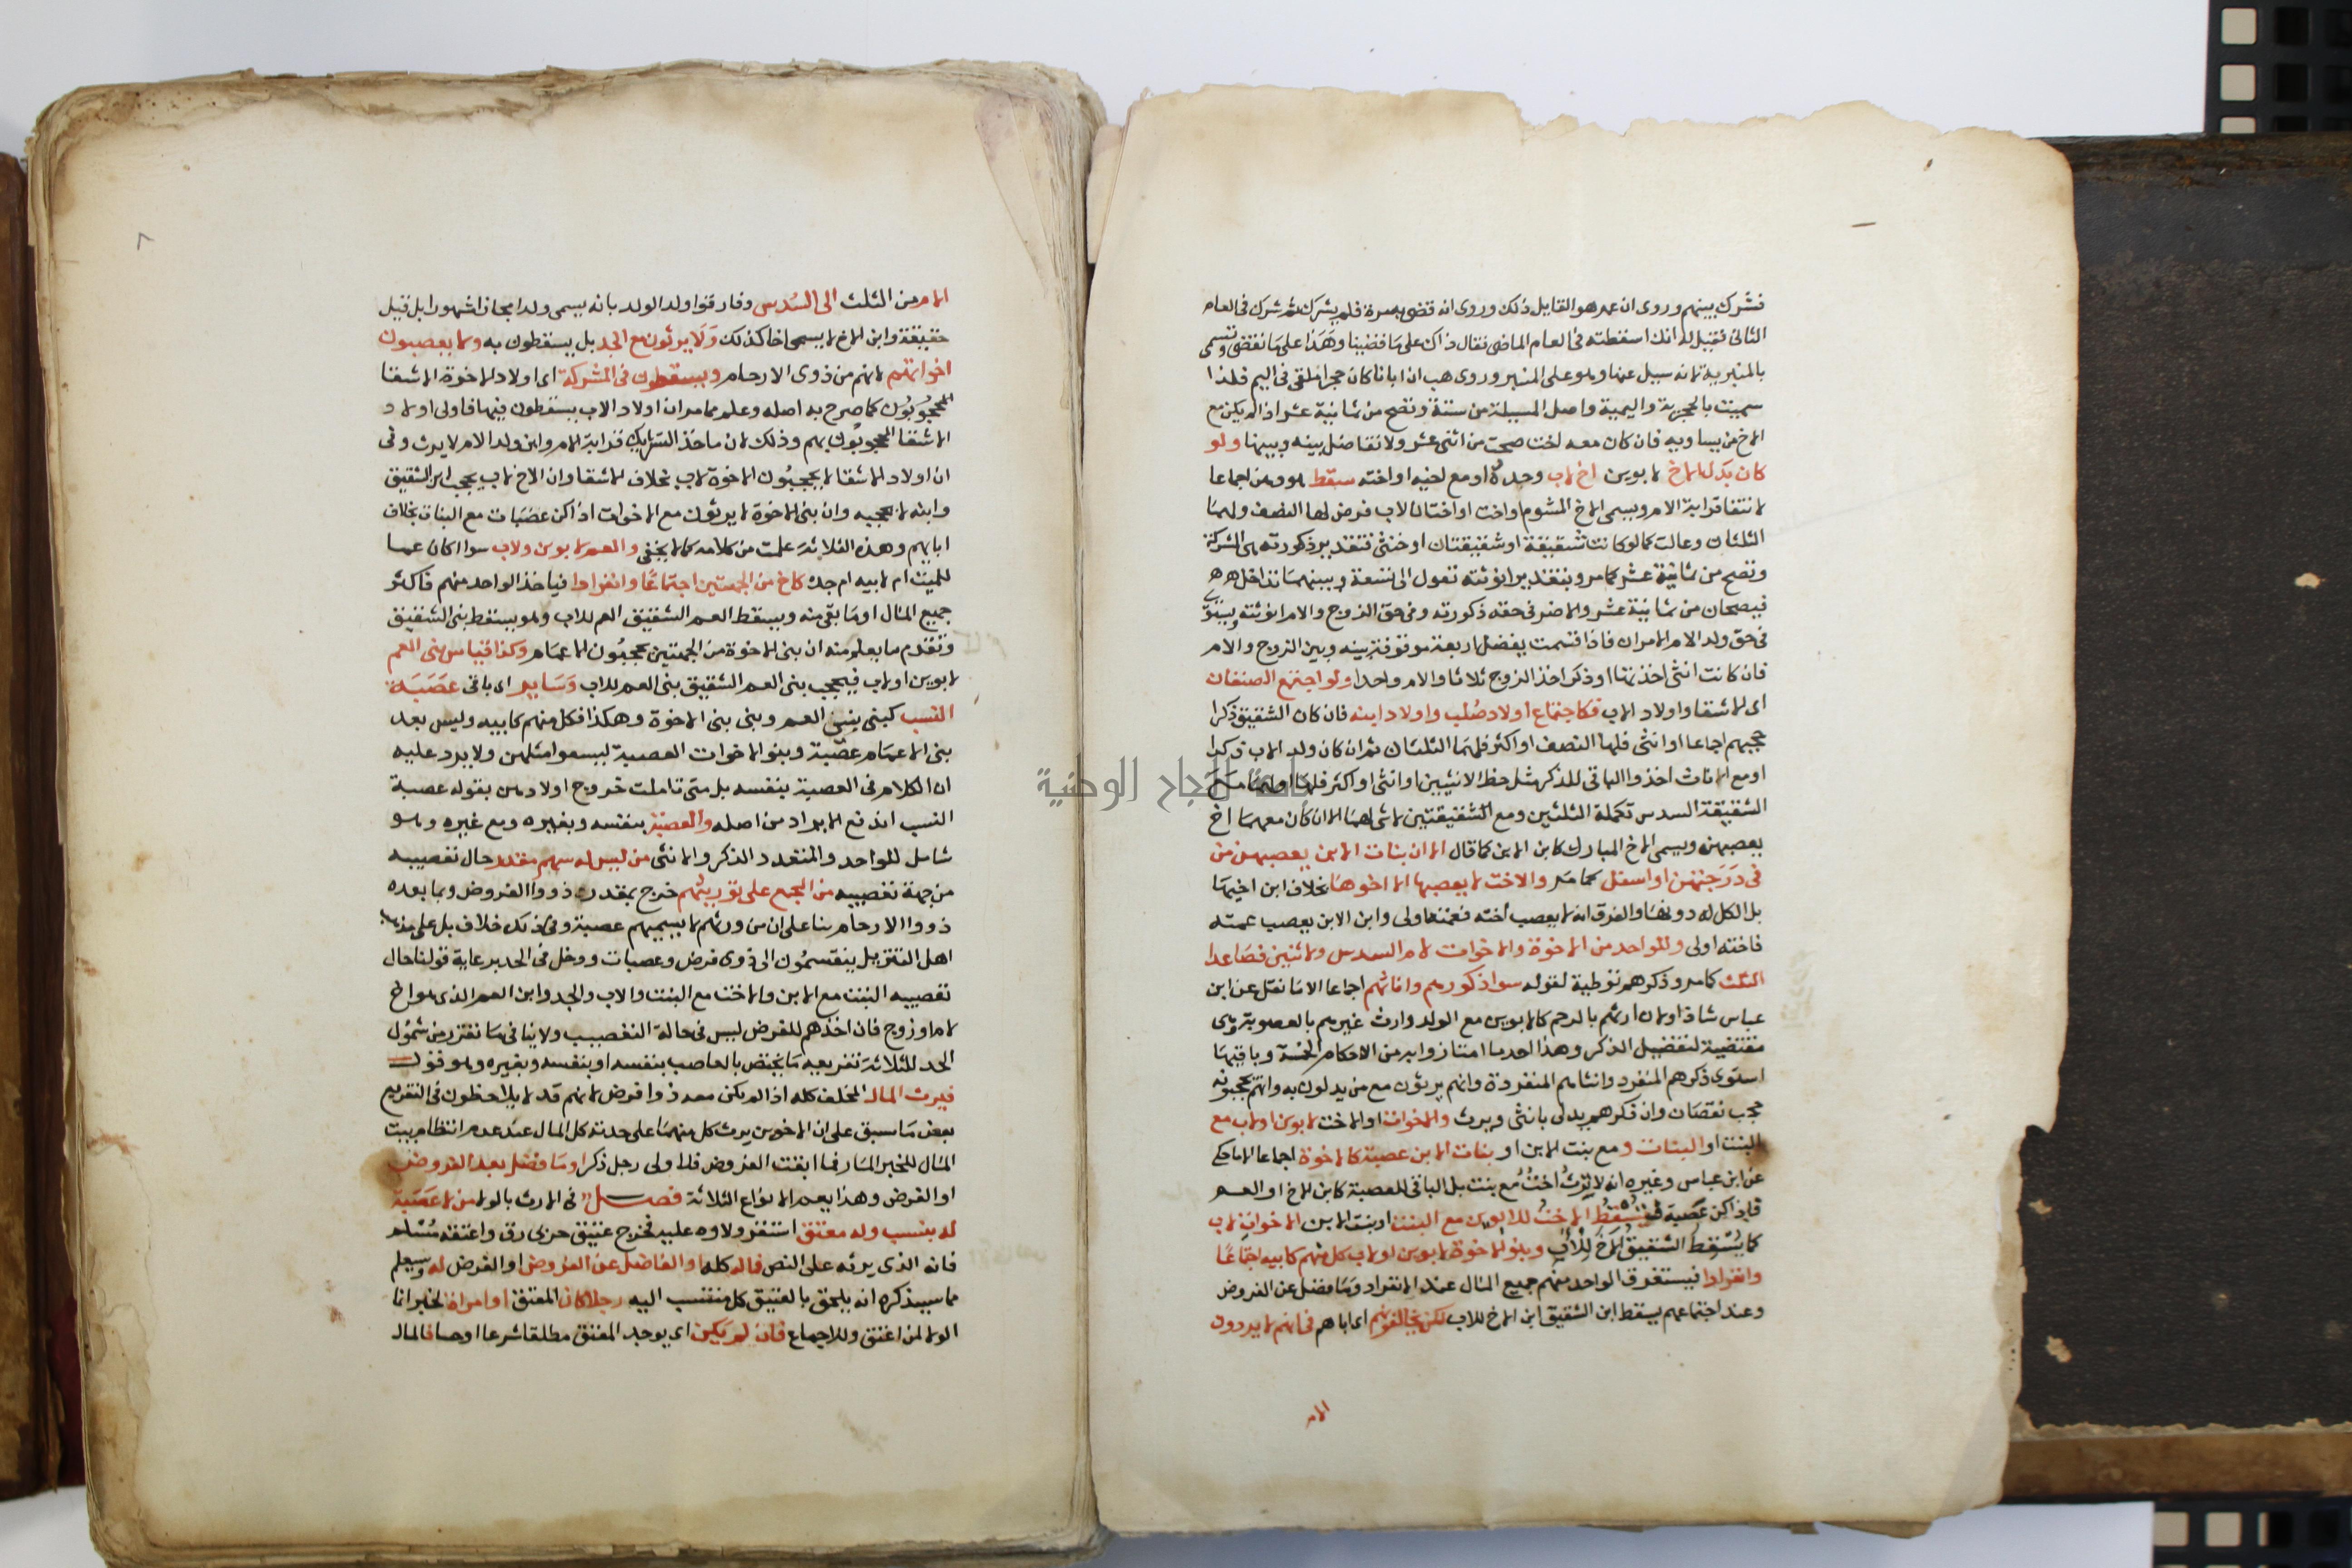 فشرك بينهم وروى ان عمر هو القايل ذلك وروى انه قضى به مرة فلم يشرك ثم شرك فى العام
الثانى فقيل له انك اسقطته فى العام الماضى فقال ذاك على ما قضينا وهذا على ما نقضى وتسمى
بالمنبرية لانه سيل عنها وهو على المنبر وروى هب ان ابانا كان حجرا ملقى فى اليم فلذا
سميت بالحجرية واليمية واصل المسيلة من ستة وتصح من ثمانية عشر اذا لم يكن مع
الاخ من يساويه فان كان معه اخت صحت من اثنى عشر ولا تفاضل بينه وبينها ولو
كان بدل الاخ لابوين اخ لاب وحده او مع اخيه او اخته سقط هو وهن اجماعا
لانتفا قرابة الام ويسمى الاخ المشوم او اخت او اختان لاب فرض لها النصف ولهما
الثلثان وعالت كما لو كانت شقيقة او شقيقتان او خنثى فتقدير ذكورته هى المشركة
وتصح من ثمانية عشر كما مر وبتقدير انوثته تعول الى تسعة وبينهما تداخل
فيصحان من ثمانية عشر والاضر فى حقه ذكورته وفى حق الزوج والام انوثته ويستوى
فى حق ولد الام الامران فاذا قسمت يفضل اربعة موقوفة بينه وبين الزوج والام
فان كانت انثى اخذتها او ذكر اخذ الزوج ثلاثا والام واحدا ولو اجتمع الصنفان
اى الاشقا واولاد الاب فكاجتماع اولاد صلب واولاد ابنه فان كان الشقيق ذكرا
حجبهم اجماعا او انثى فلها النصف او اكثر فلهما الثلثان ثم ان كان ولد الاب ذكرا
او مع الاناث اخذوا الباقى للذكر مثل حظ الانثيين او انثى او اكثر فلها او لهما مع
الشقيقة السدس تكملة الثلثين ومع الشقيقتين لا شى لهما الا ان كان معهما اخ
يعصبهن ويسمى الاخ المبارك كابن الابن كما قال الا ان بنات الابن يعصبهن من
فى درجتهن او اسفل كما مر والاخت لا يعصبها الا اخوها بخلاف ابن اخيها
بل الكل له دونها والفرق انه لا يعصب اخته فعمتها اولى وابن الابن يعصب عمته
فاخته اولى وللواحد من الاخوة والاخوات لام السدس ولاثنين فصاعدا
الثلث كما مر وذكرهم توطية لقوله سوا ذكورهم واناثهم اجماعا الا ما نقل عن ابن
عباس شاذا ولان ارثهم بالرحم كالابوين مع الولد وارث غيرهم بالعصوبة وهى
مقتضية لتفضيل الذكر وهذا احد ما امتازوا به من الاحكام الخمسة وباقيها
استوى ذكرهم المنفرد وانثاهم المنفردة وانهم يرثون مع من يدلون به وانهم يحجبونه
حجب نقصان وان ذكرهم يدلى بانثى ويرث والاخوات او الاخت لابوين او لاب مع
البنت او البنات ومع بنت الابن او بنات الابن عصبة كالاخوة اجماعا الا ما حكى
عن ابن عباس وغيره انه لا ترث اخت مع بنت بل الباقى للعصبة كابن الاخ او العم
فاذا كن عصبة فتسقط الاخت للابوين مع البنت او بنت الابن الاخوات لاب
كما يسقط الشقيق الاخ للاب وبنو الاخوة لابوين او لاب كل منهم كابيه اجتماعا
وانفرادا فيستغرق الواحد منهم جميع المال عند الانفراد وما فضل عن الفروض
وعند اجتماعهم يسقط ابن الشقيق ابن الاخ للاب لكن يخالفونهم اى اباهم فى انهم لا يردون
الام
٨
الام من الثلث الى السدس وفارقوا ولد الولد بانه يسمى ولدا مجازا مشهورا بل قيل
حقيقة وابن الاخ لا يسمى اخا كذلك ولا يرثون مع الجد بل يسقطون به ولا يعصبون
اخواتهم لانهم من ذوى الارحام ويسقطون فى المشركة اى اولاد الاخوة الاشقا
المحجوبون كما صرح به اصله وعلم مما مر ان اولاد الاب يسقطون فيها فاولى اولاد
الاشقا المحجوبون بهم وذلك لان ماخذ التشريك قرابة الام وابن ولد الام لا يرث وفى
ان اولاد الاشقا لا يحجبون الاخوة لاب بخلاف الاشقا وان الاخ لاب يحجب ابن الشقيق
وابنه لا يحجبه وان بنى الاخوة لا يرثون مع الاخوات اذا كن عصبات مع البنات بخلاف
ابايهم وهذه الثلاثة علمت من كلامه كما لا يخفى والعم لابوين ولاب سوا اكان عما
للميت ام لابيه ام جده كاخ من الجهتين اجتماعا وانفرادا فياخذ الواحد منهم فاكثر
جميع المال او ما بقى منه ويسقط العم الشقيق العم للاب وهو يسقط بنى الشقيق
وتقدم ما يعلم منه ان بنى الاخوة من الجهتين يحجبون الاعمام وكذا قياس بنى العم
لابوين او لاب فيحجب بنى العم الشقيق بنى العم للاب وساير اى باقى عصبة
النسب كبنى بنى العم وبنى بنى الاخوة وهكذا فكل منهم كابيه وليس بعد
بنى الاعمام عصبة وبنو الاخوات العصبة ليسوا مثلهن ولا يرد عليه
ان الكلام فى العصبة بنفسه بل متى تاملت خروج اولادهن بقوله عصبة
النسب اندفع الايراد من اصله والعصبة بنفسه وبغيره ومع غيره وهو
شامل للواحد والمتعدد الذكر والانثى من ليس له سهم مقدر حال تعصيبه
من جهة تعصيبه من المجمع على توريثهم خرج بمقدر ذووا الفروض وبما بعده
ذووا الارحام بنا على ان من ورثهم لا يسميهم عصبة وفى ذلك خلاف بل على مذهب
اهل التنزيل ينقسمون الى ذوى فرض وعصبات ودخل فى الحد برعاية قولنا حال
تعصيبه البنت مع الابن والاخت مع البنت والاب والجد وابن العم الذى هو اخ
لام او زوج فان اخذهم للفرض ليس فى حالة التعصيب ولا ينافى ما تقرر من شمول
الحد للثلاثة تفريعه ما يختص بالعاصب بنفسه او بنفسه وبغيره وهو قوله
فيرث المال المخلف كله اذا لم يكن معه ذوا فرض لانهم قد لا يلاحظون فى التفريع
بعض ما سبق على ان الاخوين يرث كل منهما على حدته كل المال عند عدم انتظام بيت
المال للخبر المار فما ابقت الفروض فلاولى رجل ذكر او ما فضل بعد الفروض
او الفرض وهذا يعم الانواع الثلاثة فصل فى الارث بالولا من لا عصبة
له بنسب وله معتق استقر ولاوه عليه فخرج عتيق حربى رق واعتقه مسلم
فانه الذى يرثه على النص فماله كله او الفاضل عن الفروض او الفرض له وسيعلم
مما سيذكره انه يلحق بالعتيق كل منتسب اليه رجلا كان المعتق او امراة لخبر انما
الولا لمن اعتق وللاجماع فان لم يكن اى يوجد المعتق مطلقا شرعا او حسا فالمال